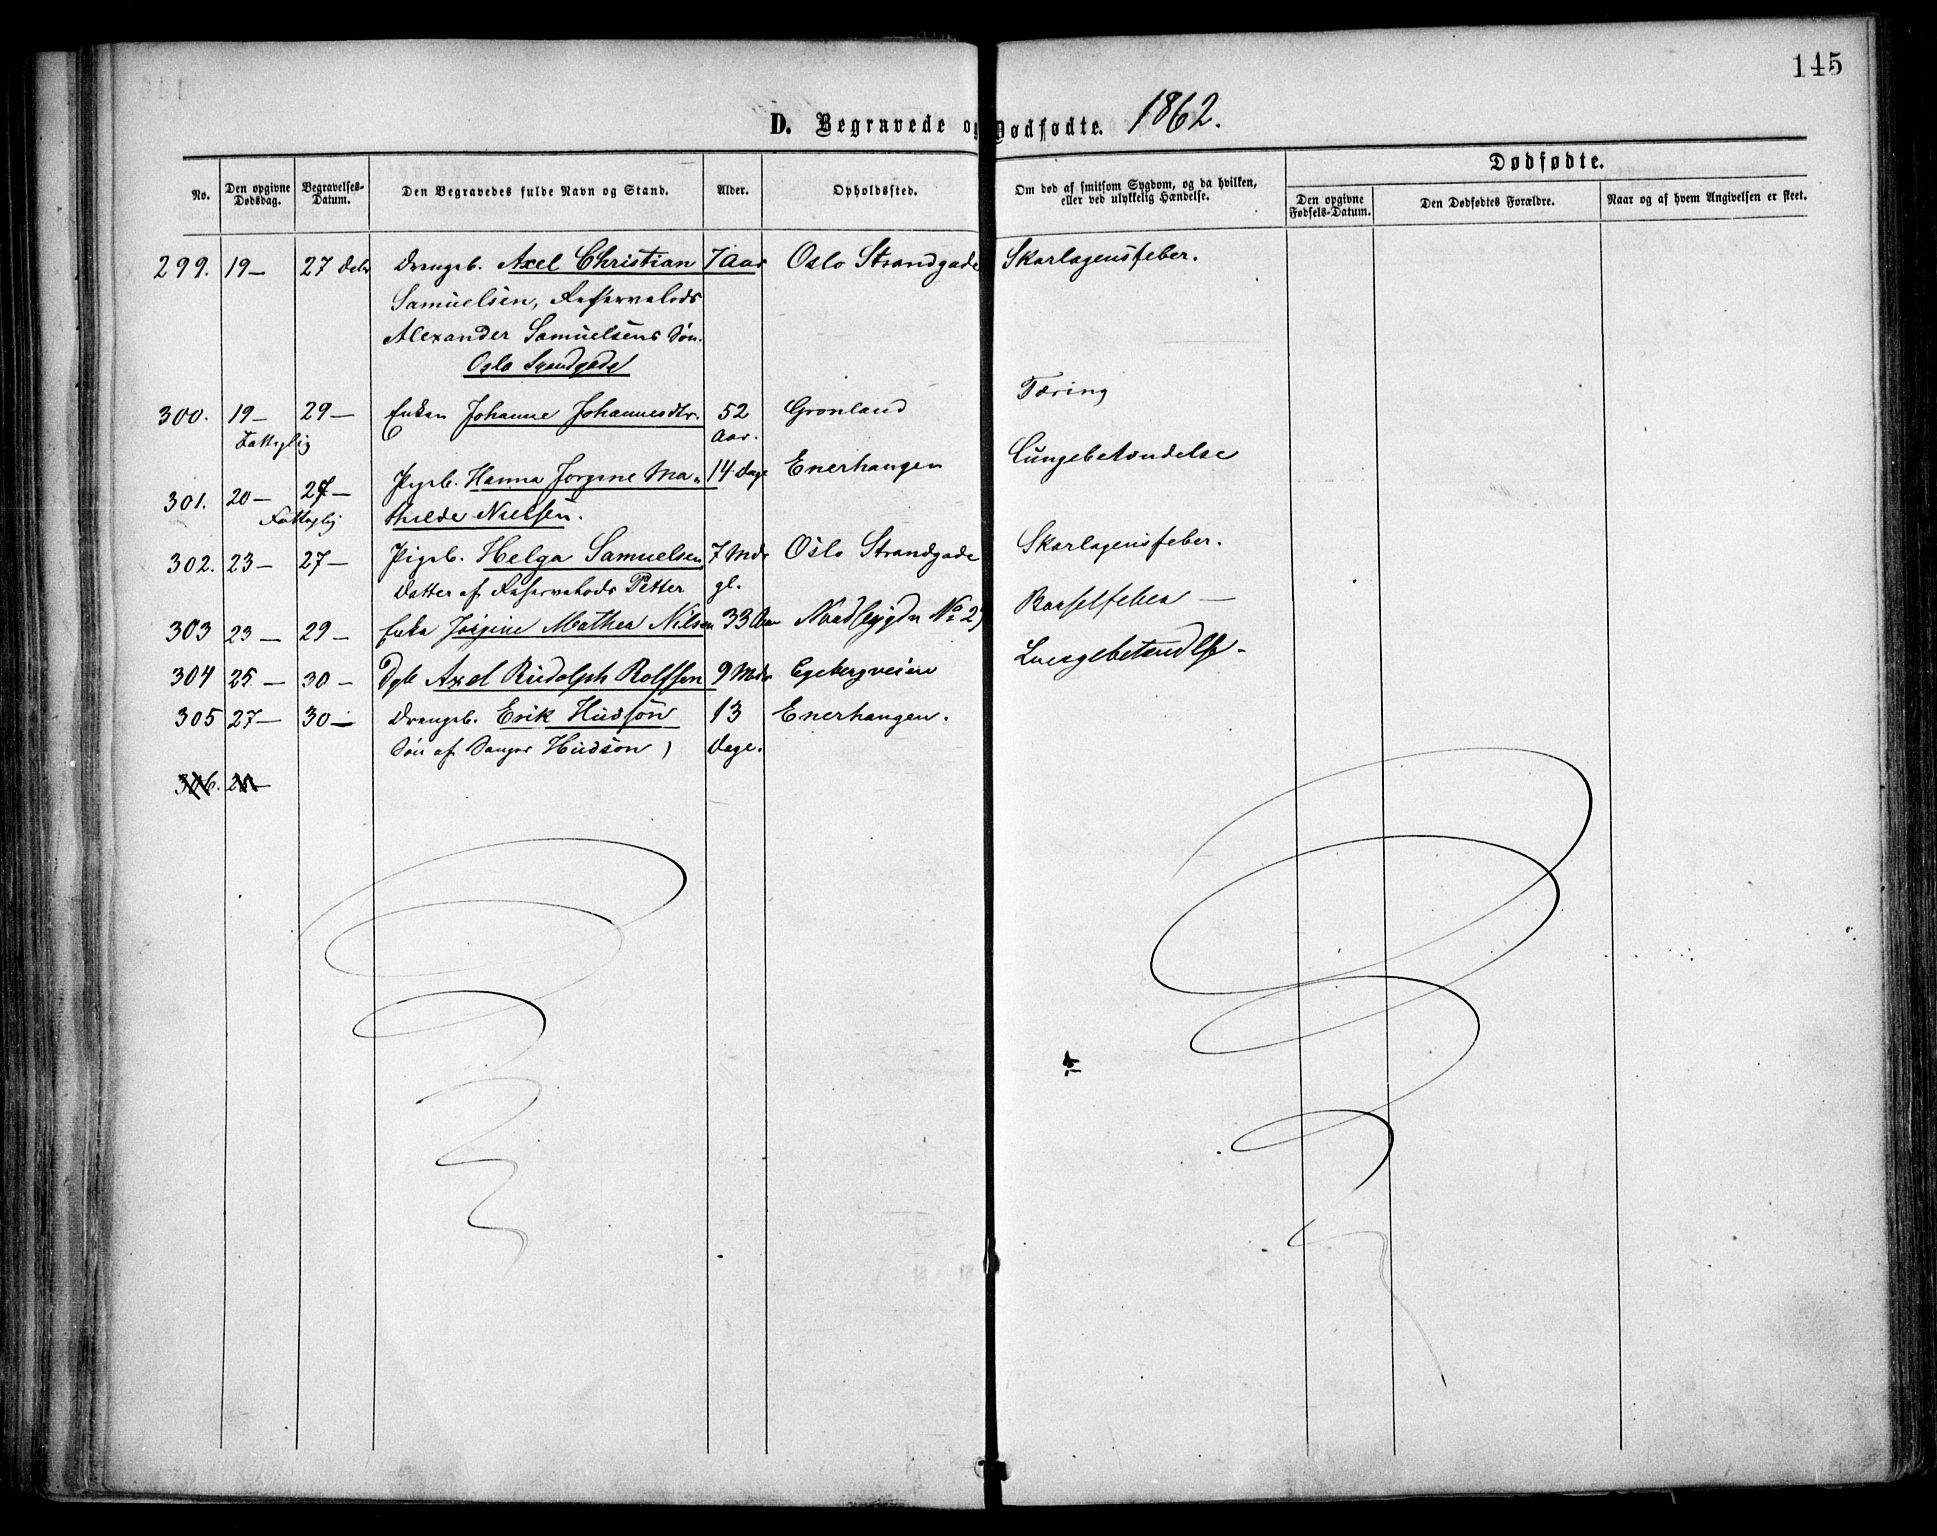 145
D. Begravede og Dødfødte. 1862.
No. Den opgivne Dødsdag. Begravelses-Datum. Den Begravedes fulde Navn og Stand. Alder. Opholdssted. Om død af smitsom Sygdom, og da hvilken, eller ved ulykkelig Hændelse. Dødfødte.
Den opgivne Fødsels-Datum. Den Dødfødtes Forældre. Naar og af hvem Angivelsen er skeet.
299. 19— 27 Debr Drengeb. Axel Christian 7 Aar Oslo Strandgade Skarlagensfeber.
Samuelsen,
Alexander Samuelsens Søn.
Oslo Strandgade
300. 19— 29— Enken Johanne Johannesdtr. 52 Grønland Tæring
Fattiglig Aar.
301. 20— 27— Pigeb. Hanna Jørgine Ma- 14 Dage Enerhaugen Lungebetændelse
Fattiglig thilde Nielsen.
302. 23— 27— Pigeb. Helga Samuelsen 7 Mdr Oslo Strandgade Skarlagensfeber.
Datter af Petter gl.
303 23— 29— Enke Jørgine Mathea Nilsen 33 Aar No 2 Barselfeber —
304 25— 30— Dgb Axel Rudolph Rolfsen 9 Mdr Egebergveien Lungebetændelse -
305 27— 30— Drengeb. Erik Hudson 13 Enerhaugen.
Søn af Sanger Hudson Dage.
306.